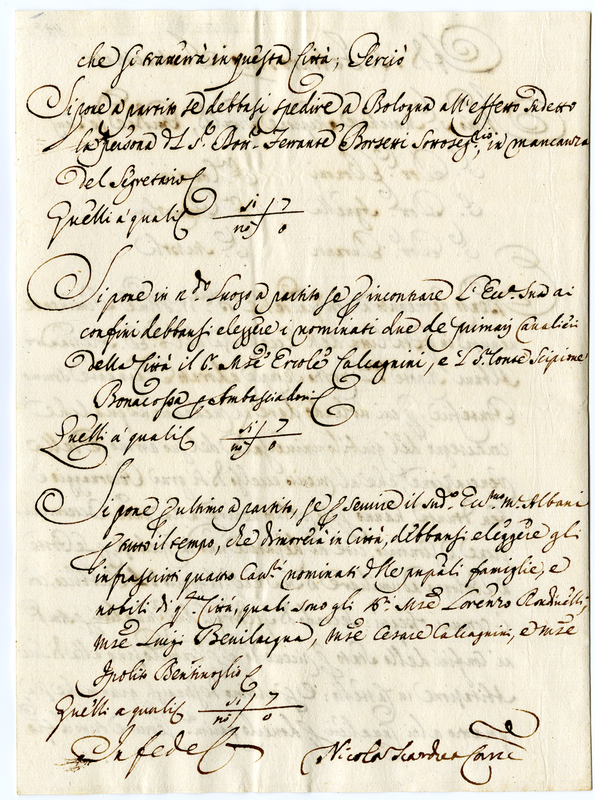 che si tratterrà in questa Città; Perciò
Si pone a partito se debbasi spedire a Bologna all'effetto sudetto
la persona del S.r Dott.r Ferrante Borsetti Sottoseg.rio, in mancanza
del Segretario
Quelli a quali si 7
no 0
Si pone in 2.do luogo a partito se p incontrare l'Ecc.a Sua ai
confini debbansi eleggere i nominati due de primarj Cavalieri
della Città il S. Mse Ercole Calcagnini, e l S. Conte Scipione
Bonacossa p Ambasciadori
Quelli a quali si 7
no 0
Si pone p ultimo a partito, se p servire il sud.o Ecc.mo Mr Albani
p tutto il tempo, che dimorerà in Città, debbansi eleggere gli
infrascritti quattro Cav.ri nominati delle prnpali famiglie, e
nobili di q.sta Città, quali sono gli S.ri Mse Lorenzo Rondinelli,
Mse Luigi Bevilacqua, Mse Cesare Calcagnini, e Mse
Ipolito Bentivoglio
Quelli a quali si 7
no 0
In fede
Nicolò